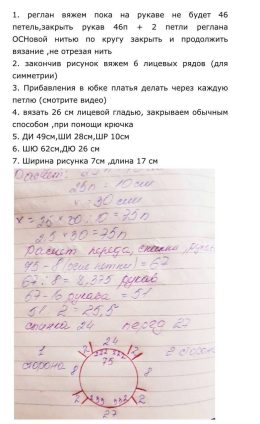 1. реглан вяжем пока на рукаве не будет 46
петель,закрыть рукав 46п + 2 петли реглана
ОСНовой нитью по кругу закрыть и продолжить
вязание ,не отрезая нить
2. закончив рисунок вяжем 6 лицевых рядов (для
симметрии)
3. Прибавления в юбке платья делать через каждую
петлю (смотрите видео)
4. вязать 26 см лицевой гладью, закрываем обычным
способом ,при помощи крючка
5. ДИ 49см,ШИ 28см,ШР 10см
6. ШЮ 62см,ДЮ 26 см
7. Ширина рисунка 7см ,длина 17 см
25п = 10 см
х = 30 см
х = 25 × 30 : 10 = 75п
2,5 × 30 = 75п
Расчет переда, спинки, рукава
75 - 8 = 67
67 : 8 = 8,375 рукав
67 - 16 рукава = 51
51 : 2 = 25,5
спинка 24 перед 27
24
1 2 2 2 сторона
сторона 8 75 8
2 2
27